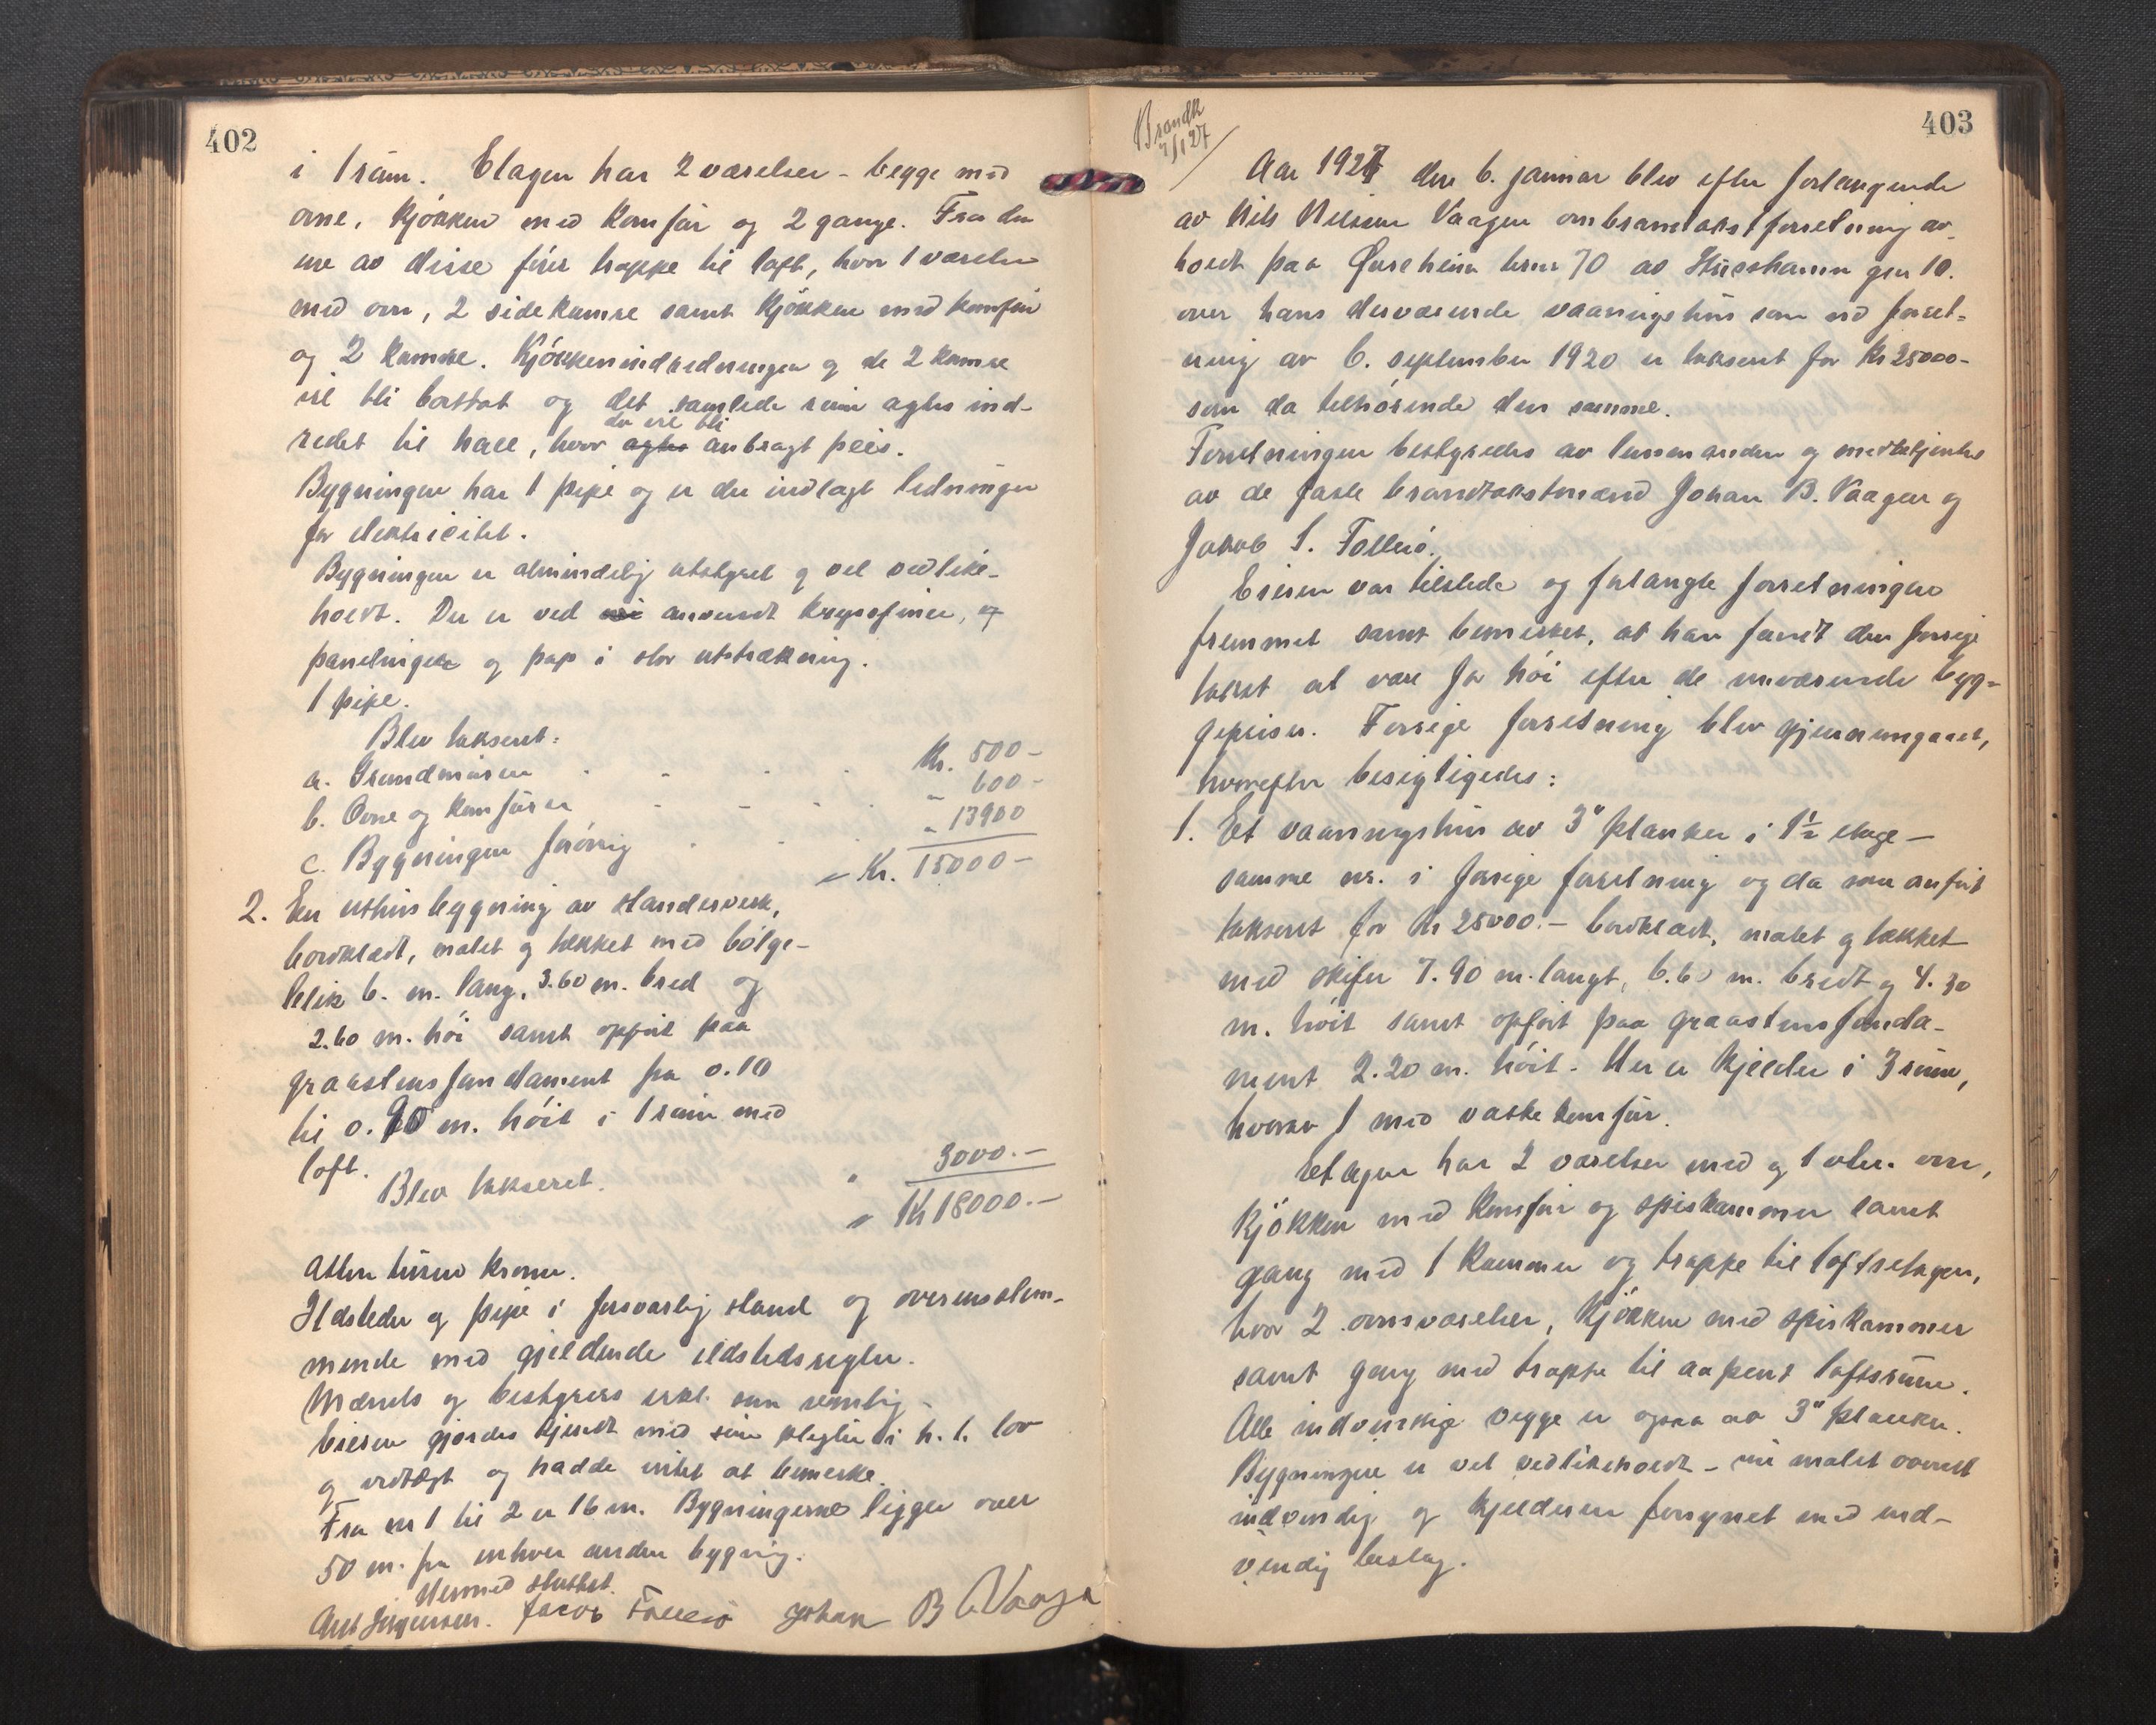 402
i 1 rum. Etagen har 2 værelser - begge med
ovne, kjøkken med komfur og 2 gange. Fra den
ene av disse fører trappe til loft, hvor 1 værelse
med ovn, 2 sidekamre samt kjøkken med komfur
og 2 kamre. Kjøkkenindredningen og de 2 kamre
vil bli borttat og det samlede rum agtes ind-
redet til hall, hvor agtes der vil bli anbragt peis.
Bygningen har 1 pipe og er der indlagt ledninger
for elektricitet.
Bygningen er almindelig utstyret og vel vedlike-
holdt. Der er ved anvendt krysfiner, og
panelinger og pap i stor utstrækning.
1 pipe.
Blev taksert:
a. Grundmuren . . . . Kr. 500-
b. Ovne og komfurer - - . . - 600-
c. Bygningen forøvrig . . . - 13900
- Kr. 15000-
2. En uthusbygning av stenderverk,
bordklædt, malet og tækket med bølge-
blik 6. m. lang, 3.60 m. bred og
2.60 m. høi samt opført paa
graastensfundament fra 0.10
til 0.90 m. høit i 1 rum med
loft.
Blev takseret. " 3000.-
" Kr 18000.-
Atten tusen kroner.
Ildsteder og pipe i forsvarlig stand og overensstem-
mende med gjeldende ildstedsregler.
Mænds og bestyrers erkl. som vanlig.
Eieren gjordes kjendt med sine pligter i h. t. lov
og vedtægt og hadde intet at bemerke.
Fra nr 1 til 2 er 16 m. Bygningerne ligger over
50 m. fra enhver anden bygning.
Hermed sluttet.
Jørgensen. Jacob Follesø Johan B Vaage
403
Brandk
7/1 27
Aar 1927 den 6. januar blev efter forlangende
av Nils Nilsen Vaagen ombrandtakstforretning av-
holdt paa brnr 70 av gnr 10.
over hans derværende vaaningshus som ved forret-
ning av 6. september 1920 er taksert for Kr 25000-
som da tilhørende den samme.
Forretningen bestyredes av lensmanden og medbetjentes
av de faste brandtakstmænd Johan B. Vaagen og
Jakob S. Follesø.
Eieren var tilstede og forlangte forretningen
fremmet samt bemerket, at han fandt den forrige
takst at være for høi efter de nuværende byg-
gepriser. Forrige forretning blev gjennemgaaet,
hvorefter besigtigedes:
1. Et vaaningshus av 3" planker i 1½ etage -
samme nr. i forrige forretning og da som anført
takseret for Kr 25000.- bordklædt, malet og tækket
med skifer 7.90 m. langt, 6.60 m. bredt og 4.30
m. høit samt opført paa graastensfunda-
ment 2.20 m. høit. Her er kjelder i 3 rum,
hvorav 1 med vaskekomfur.
Etagen har 2 værelser med og 1 uten ovn,
kjøkken med komfur og spiskammer samt
gang med 1 kammer og trappe til loftsetagen,
hvor 2 ovnsværelser, kjøkken med spiskammer
samt gang med trappe til aapent loftsrum.
Alle indvendige vegge er ogsaa av 3" planker.
Bygningen er vel vedlikeholdt - nu malet overalt
indvendig og kjelderen forsynet med ind-
vendig beslag.